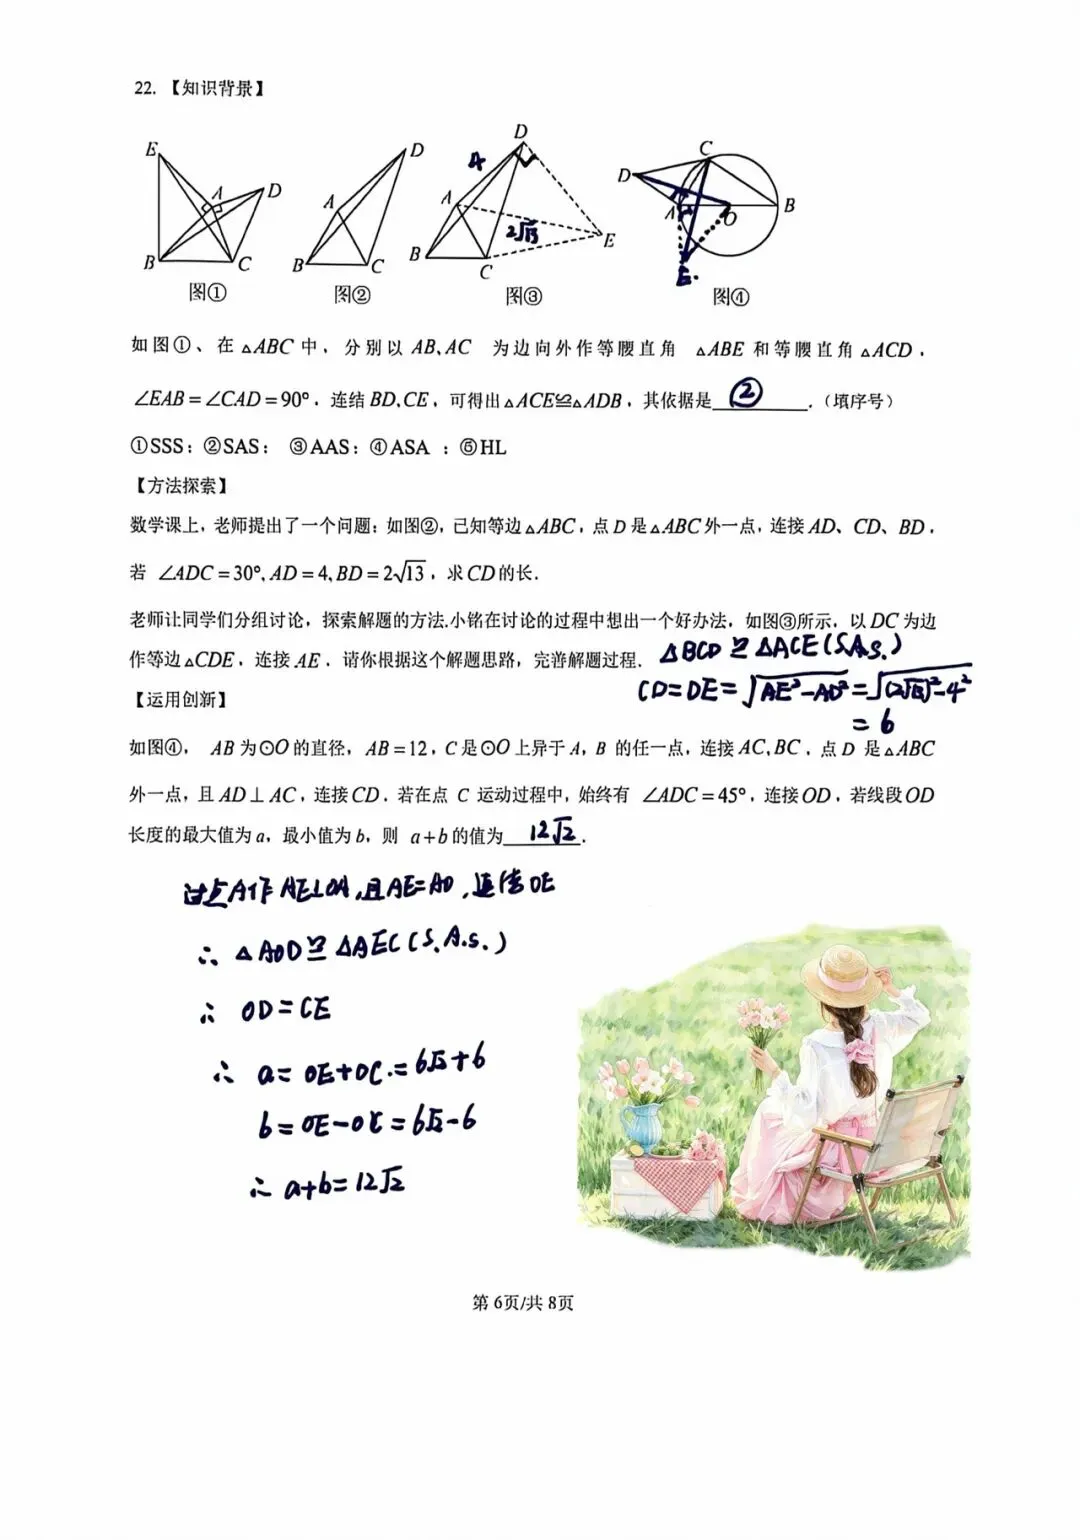 22. 【知识背景】
E A D B C
图①
D A B C
图②
D 4 A 2√13 E B C
图③
C D A O B E.
图④
如图①、在 △ABC 中，分别以 AB、AC 为边向外作等腰直角 △ABE 和等腰直角 △ACD，
∠EAB=∠CAD=90°，连结 BD、CE，可得出△ACE≌△ADB，其依据是 ② .（填序号）
①SSS；②SAS； ③AAS；④ASA ；⑤HL
【方法探索】
数学课上，老师提出了一个问题：如图②，已知等边△ABC，点 D 是△ABC 外一点，连接 AD、CD、BD，
若 ∠ADC=30°, AD=4, BD=2√13，求CD的长.
老师让同学们分组讨论，探索解题的方法.小铭在讨论的过程中想出一个好办法，如图③所示，以DC为边
作等边△CDE，连接AE．请你根据这个解题思路，完善解题过程．
△BCD≌△ACE(S.A.S.)
CD=DE=√AE²-AD²=√(2√13)²-4²
=6
【运用创新】
如图④， AB为⊙O的直径，AB=12，C是⊙O上异于A，B 的任一点，连接AC、BC，点D 是△ABC
外一点，且AD⊥AC，连接CD．若在点 C 运动过程中，始终有 ∠ADC=45°，连接OD，若线段OD
长度的最大值为a，最小值为b，则 a+b的值为 12√2 .
过点A作AE⊥OA,且AE=AO,连结OE
∴ △AOD≌△AEC(S.A.S.)
∴ OD=CE
∴ a=OE+OC=6√2+6
b=OE-OC=6√2-6
∴ a+b=12√2
第 6页/共 8页